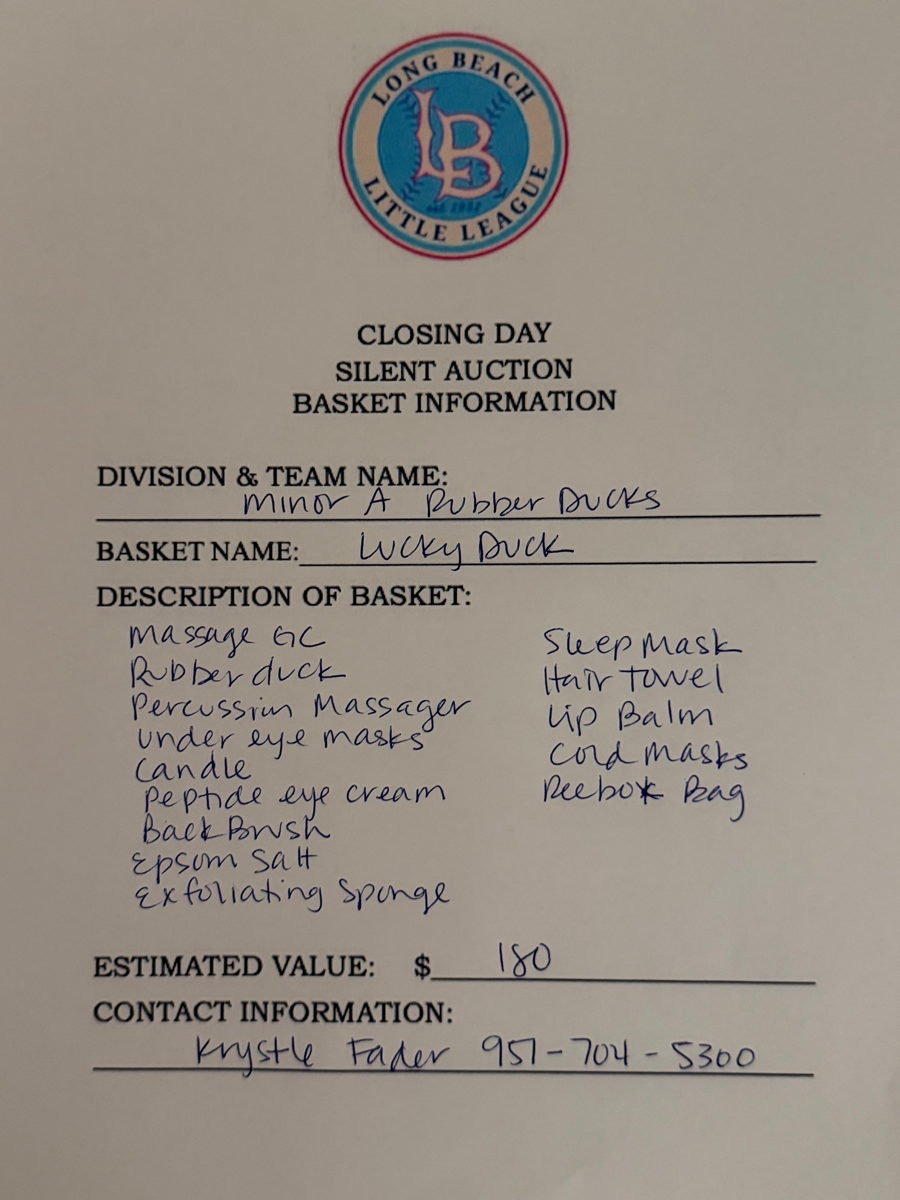 LONG BEACH
LB
est 1952
LITTLE LEAGUE
CLOSING DAY
SILENT AUCTION
BASKET INFORMATION
DIVISION & TEAM NAME:
Minor A Rubber Ducks
BASKET NAME: Lucky Duck
DESCRIPTION OF BASKET:
Massage GC
Rubber duck
Percussion Massager
Under eye masks
Candle
Peptide eye cream
Back Brush
Epsom Salt
Exfoliating Sponge
Sleep Mask
Hair Towel
Lip Balm
Cold Masks
Reebok Bag
ESTIMATED VALUE: $ 180
CONTACT INFORMATION:
Krystle Fader 951-704-5300